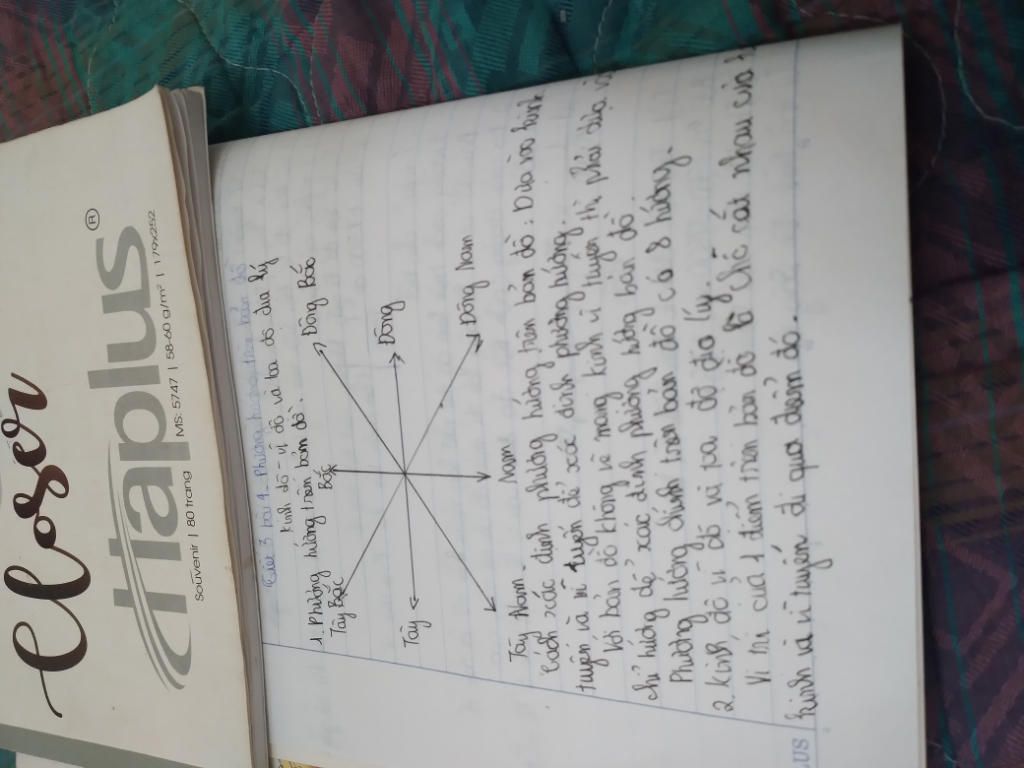 Closer
Haplus®
MS: 5747 | 58-60 g/m² | 179x252
Souvenir | 80 trang
Tiết 3 bài 4 Phương hướng trên bản đồ
kinh độ - vĩ độ và tọa độ địa lý
1. Phương hướng trên bản đồ.
Tây Bắc
Bắc
Đông Bắc
Tây
Đông
Tây Nam.
Nam
Đông Nam
Cách xác định phương hướng trên bản đồ: Dựa vào kinh
tuyến và vĩ tuyến để xác định phương hướng.
Với bản đồ không vẽ mạng kinh vĩ tuyến thì phải dựa
chỉ hướng để xác định phương hướng bản đồ
Phương hướng chính trên bản đồ có 8 hướng.
2. kinh độ vĩ độ và tọa độ địa lý.
Vị trí của 1 điểm trên bản đồ là chỗ cắt nhau của
kinh và vĩ tuyến đi qua điểm đó.
LUS